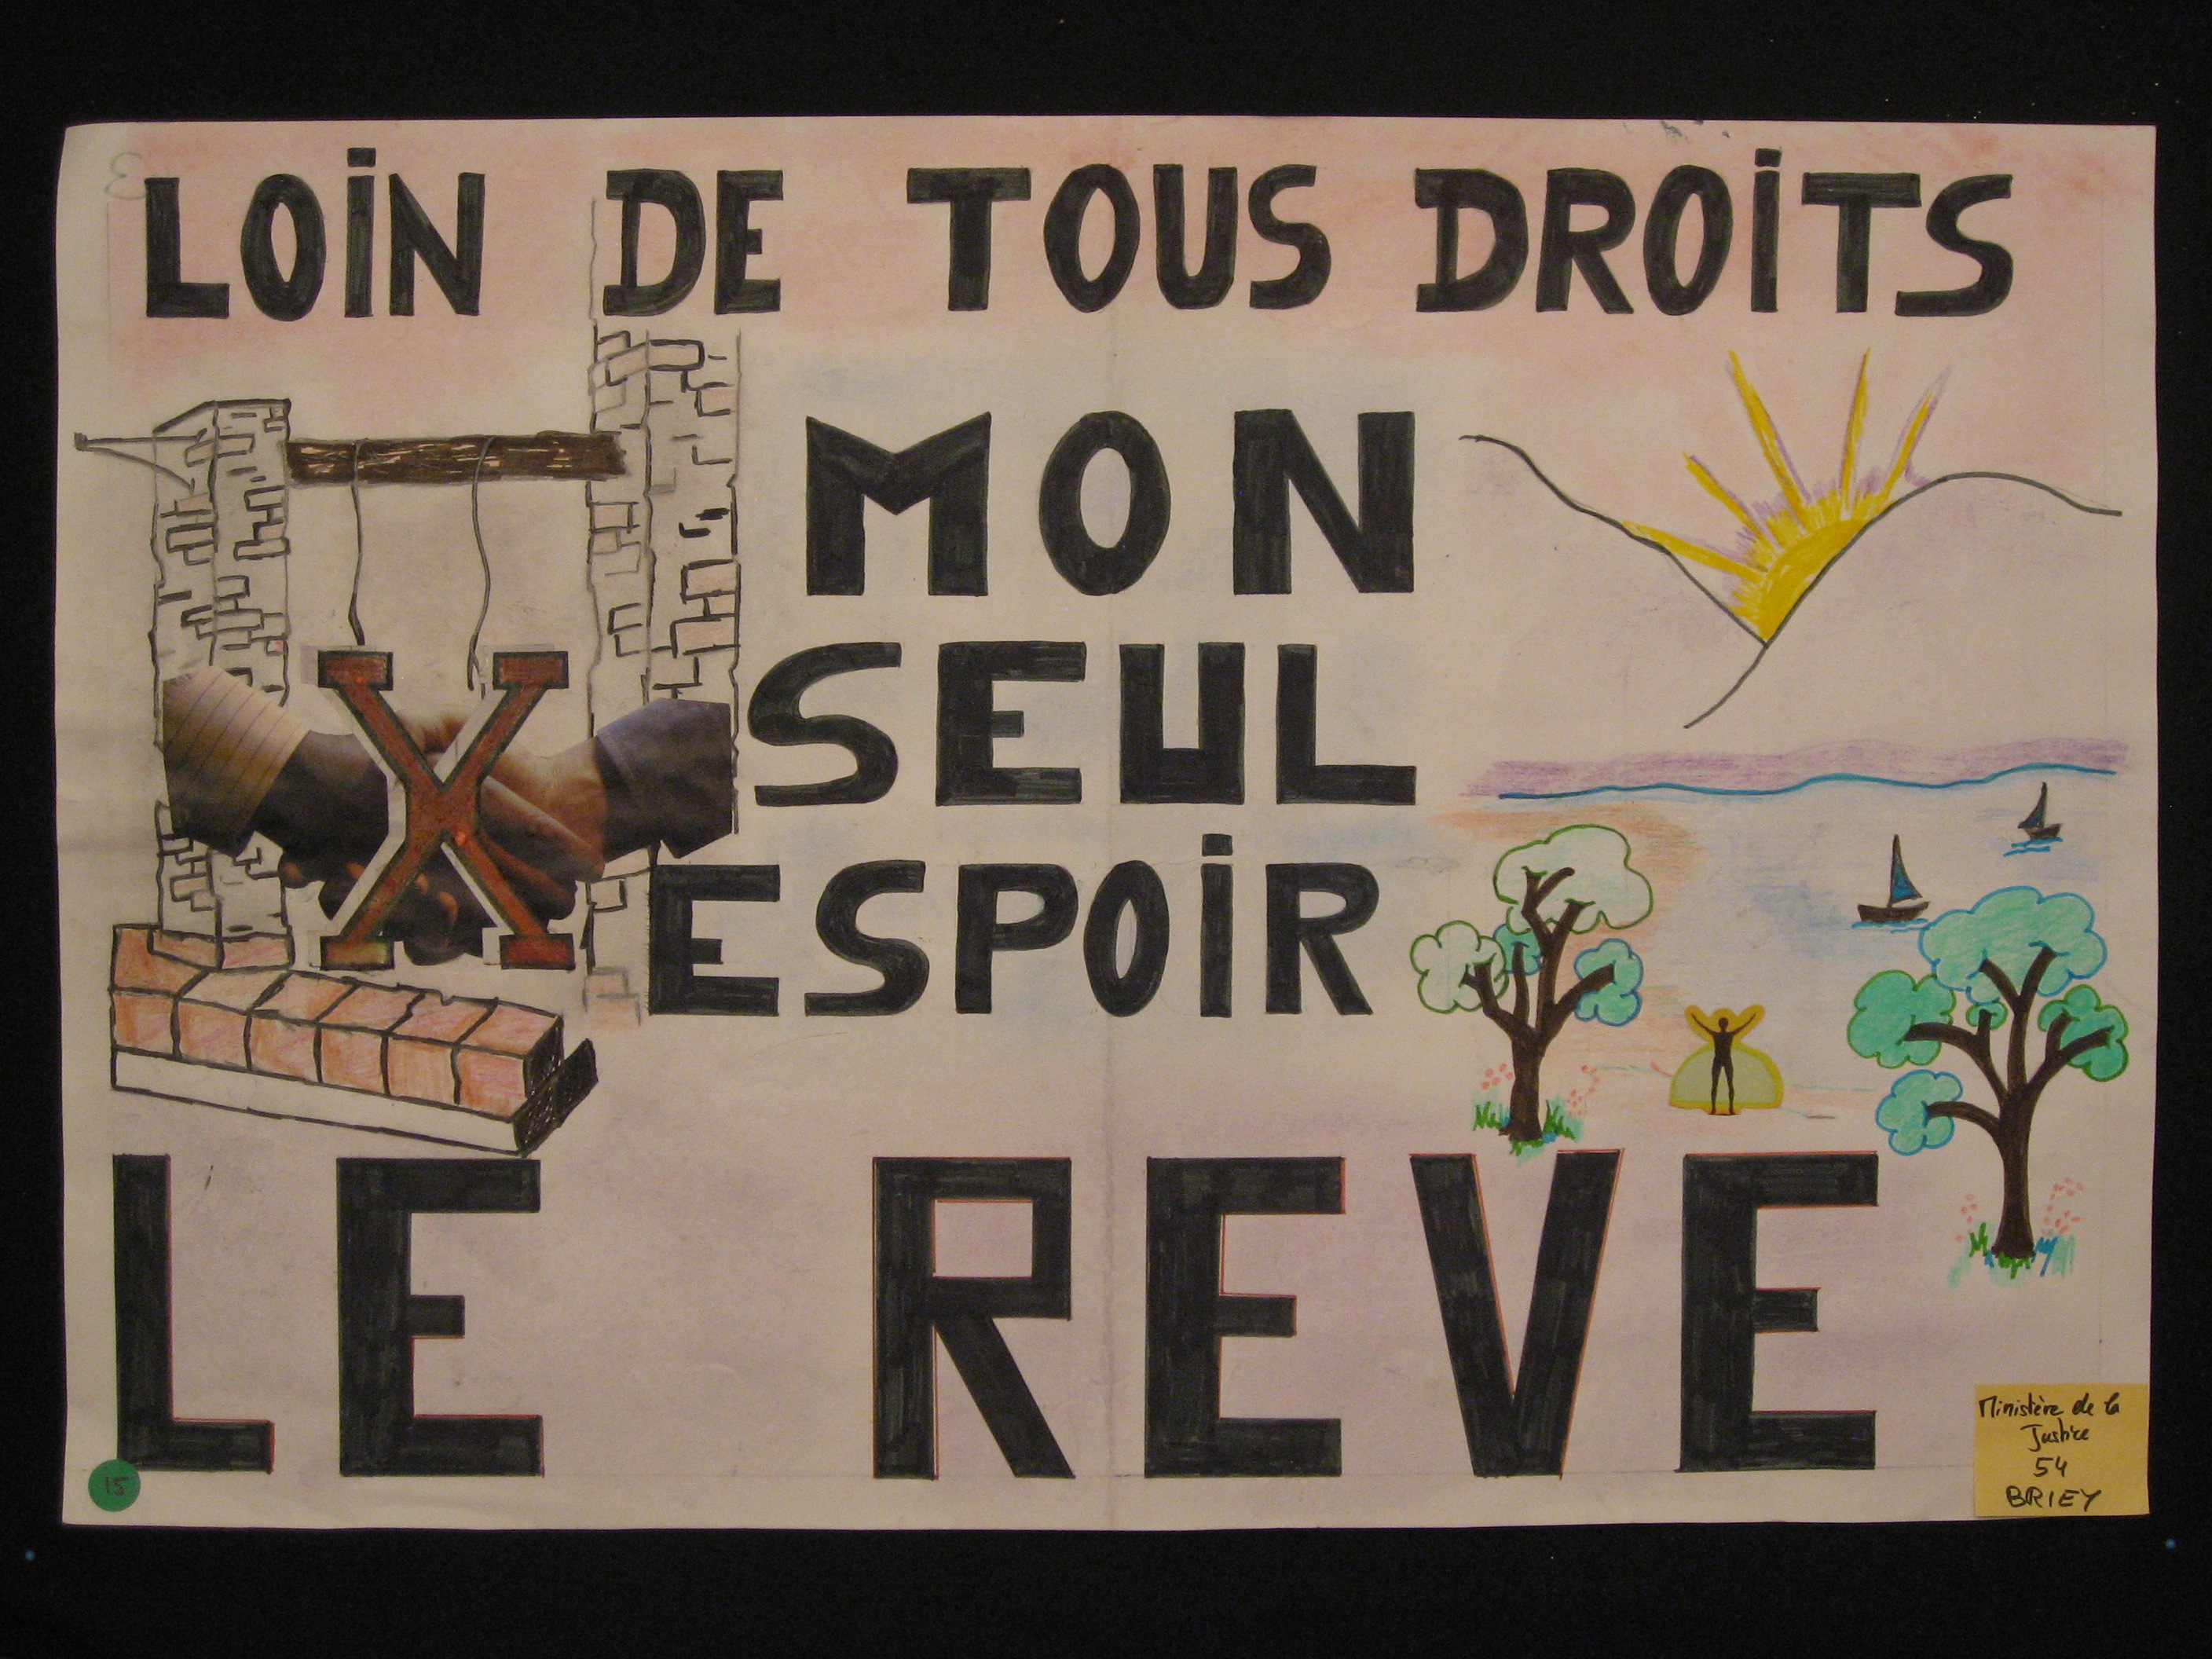 LOiN DE TOUS DROiTS
MON
SEUL
ESPOiR
X
LE REVE
15
Ministère de la
Justice
54
BRIEY